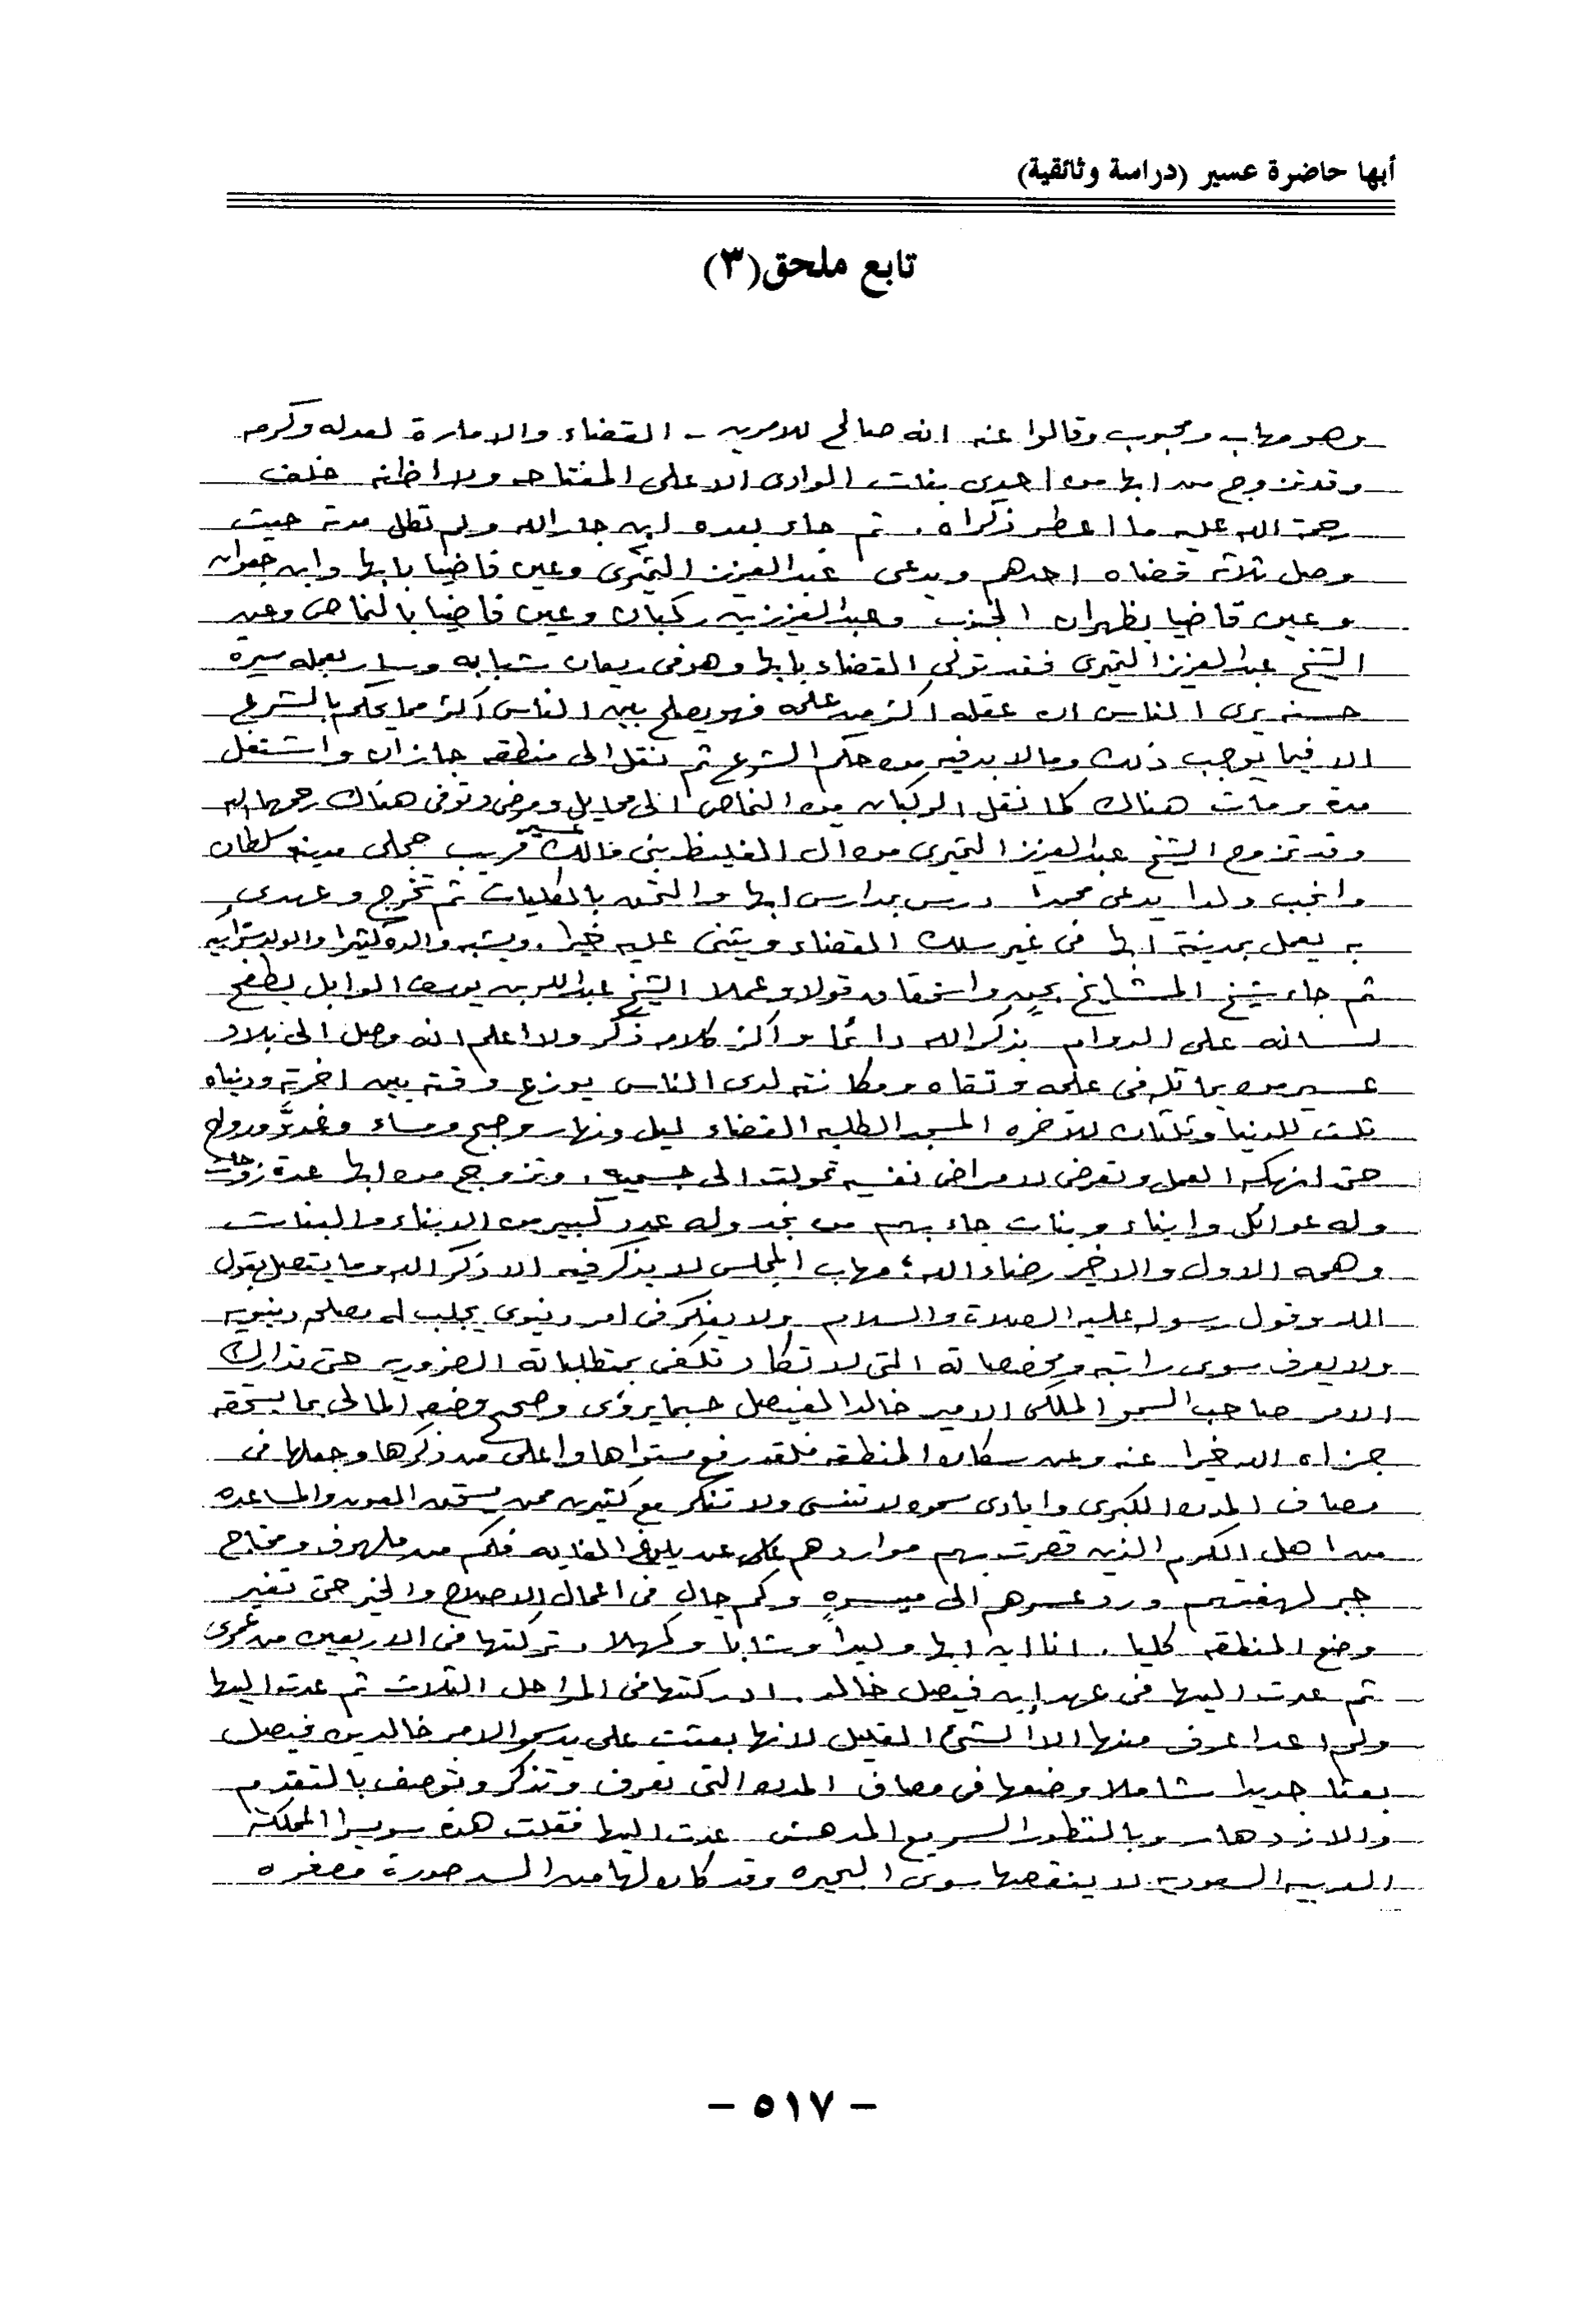 أبها حاضرة عسير (دراسة وثائقية)
تابع ملحق(٣)
وهو مهاب ومحبوب وقالوا عنه انه صالح للامرين - القضاء والامارة لعدله وكرمه
وقد تزوج من ابها من احدى بنات الوادى الاعلى المفتاحه ولا اظنه خلف
رحمة الله عليه ما اعطر ذكراه . ثم جاء بعده ابن جار الله ولم تطل مدته حيث
وصل ثلاثة قضاه احدهم ويدعى عبدالعزيز التميرى وعين قاضيا بابها وابن جعوان
وعين قاضيا بظهران الجنوب وعبدالعزيز بن ركبان وعين قاضيا بالنماص وعن
الشيخ عبدالعزيز التميرى فقد تولى القضاء بابها وهو فى ريعان شبابه وسار بعمله سيرة
حسنه يرى الناس ان عقله اكثر من علمه فهو يصلح بين الناس اكثر مما يحكم بالشرع
الا فيما يوجب ذلك ومالا بد فيه من حكم الشرع ثم نقل الى منطقه جازان واشتغل
مدة ومات هناك كما نقل الركبان من النماص الى محايل ومرض وتوفى هناك رحمهما الله
وقد تزوج الشيخ عبدالعزيز التميرى من ال الغليظ بنى مالك عسير قريب جحلى مدينة سلطان
وانجب ولدا يدعى محمدا درس بمدارس ابها والتحق بالكليات ثم تخرج وعهدى
به يعمل بمدينة ابها فى غير سلك القضاء ويثنى عليه خيرا . ويشبه والده كثيرا والولد سر ابيه
ثم جاء شيخ المشائخ بحق واستحقاق قولا وعملا الشيخ عبدالله بن يوسف الوابل يطفح
لسانه على الدوام بذكر الله دائما واكثر كلامه ذكر ولا اعلم انه وصل الى بلاد
عسير من يماثله فى علمه وتقاه ومكانته لدى الناس يوزع وقته بين اخرته ودنياه
ثلث للدنيا وثلثان للآخره المسجد الطلبه القضاء ليل ونهار وصبح ومساء وغدوٌ ورواح
حتى انهكه العمل وتعرض لامراض نفسيه تحولت الى جسميه . وتزوج من ابها عدة زوجات
وله عوائل وابناء وبنات جاء بهم من نجد وله عدد كبير من الابناء والبنات
وهمه الاول والاخير رضاء الله ؛ مهاب المجلس لا يذكر فيه الا ذكر الله وما يتصل بقول
الله وقول رسوله عليه الصلاة والسلام ولا يفكر فى امر دنيوى يجلب له مصلحه دنيويه
ولا يعرف سوى راتبه ومخصصاته التى لا تكاد تكفى بمتطلباته الضروريه حتى تدارك
الامر صاحب السمو الملكى الامير خالد الفيصل حسبما يروى وصحح وضعه المالى بما يستحقه
جزاه الله خيرا عنه وعن سكان المنطقه فلقد رفع مستواها واعلى من ذكرها وجعلها فى
مصاف المدن الكبرى وايادى سموه لا تنسى ولا تنكر مع كثيرين ممن يستحق العون والمساعده
من اهل الكرم الذين قصرت بهم مواردهم عن بلوغ الغايه فكم من ملهوف ومحتاج
جبر لهفتهم ورد عسرهم الى ميسرهٍ وكم جالٍ فى اعمال الاصلاح والخير حتى تغير
وضع المنطقه كليا . انا ابن ابها وليداً وشابا وكهلا . تركتها فى الاربعين من عمرى
ثم عدت اليها فى عهد ابن فيصل خالد . ادركتها فى المراحل الثلاث ثم عدت اليها
ولم اعد اعرف منها الا الشئ القليل لانها بعثت على يد سمو الامير خالد بن فيصل
بعثا جديدا شاملا وضعها فى مصاف المدن التى تعرف وتذكر وتوصف بالتقدم
والازدهار وبالتطور السريع المدهش عدت اليها فقلت هذه سويسرا المملكة
العربيه السعوديه لا ينقصها سوى البحيره وقد كان لها من السد صورة مصغره
- ٥١٧ -